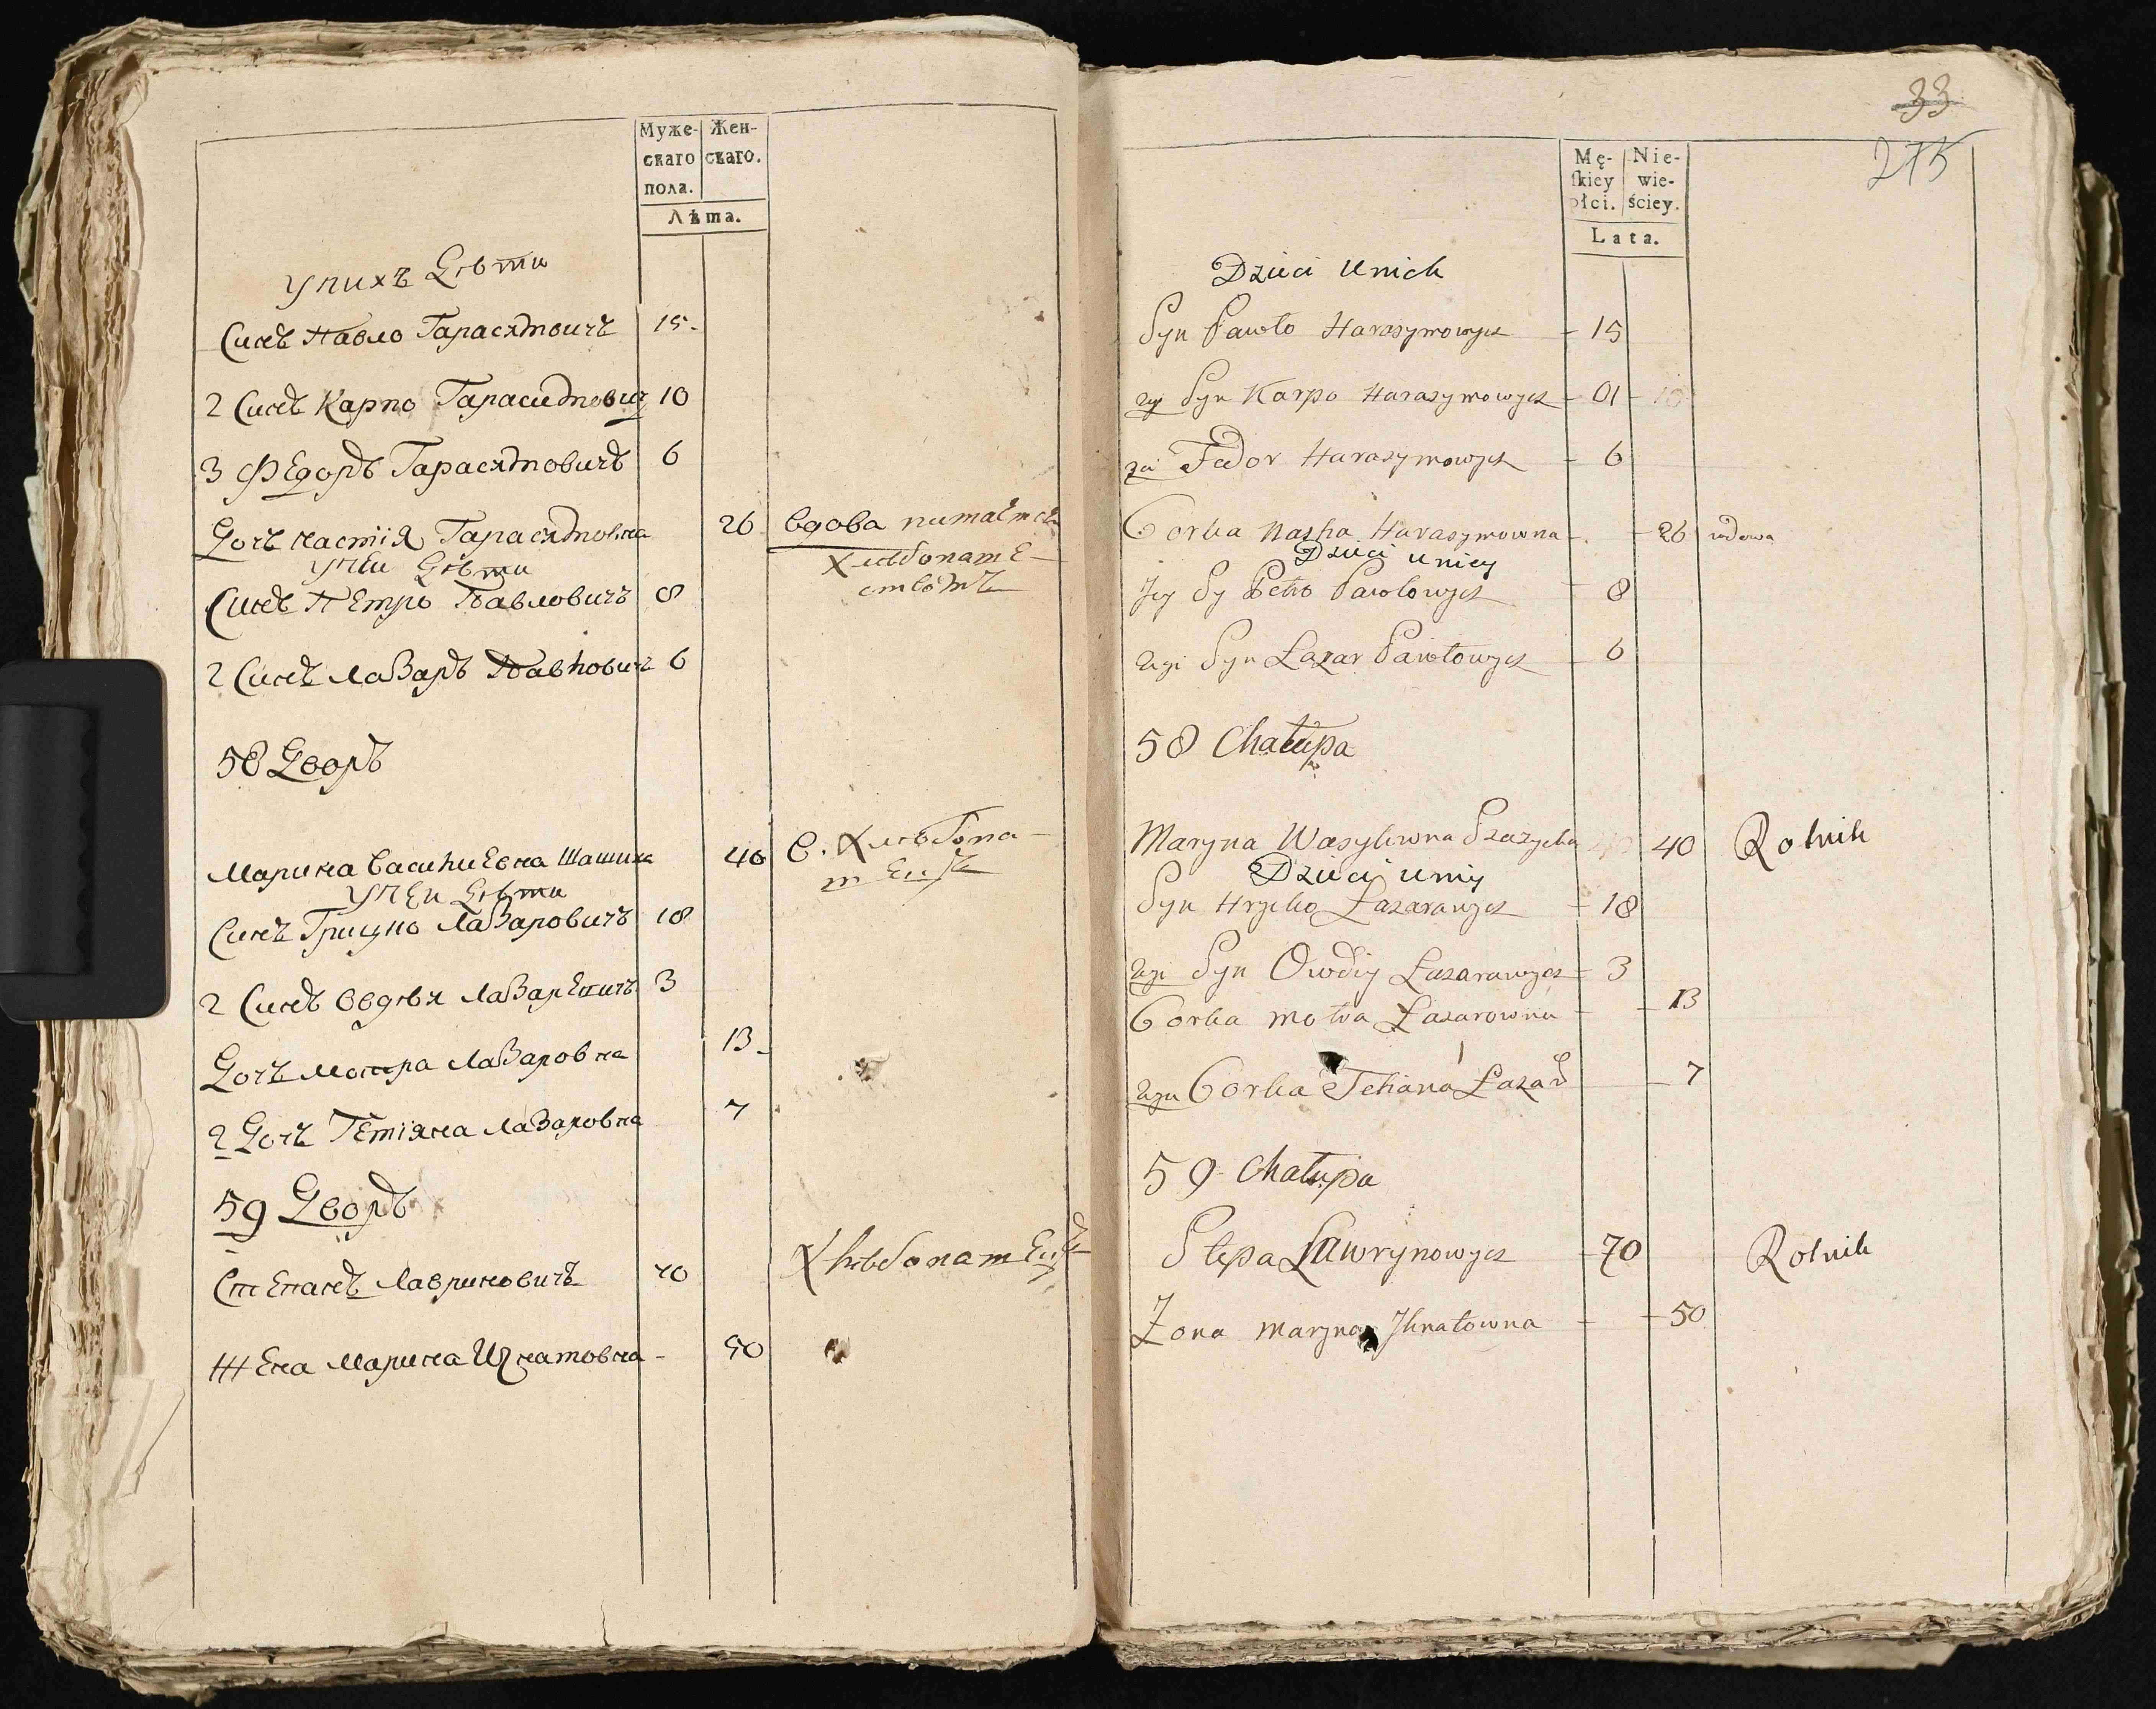 Муже-
скаго
пола.
Жен-
скаго.
Лѣта.
У нихъ Дѣти
Синъ Павло Гарасимовичъ 15.
2 Синъ Карпо Гарасимович 10
3 Федоръ Гарасимовичъ 6
Дочь Настія Гарасимовна 26 вдова питаетса
хлѣбопаше-
ством
У неи Дѣти
Синъ Петро Павловичъ 8
2 Синъ Лазаръ Павловичъ 6
58 Дворъ
Марина Василиевна Шашиха 40 в. Хлѣбопа-
У неи Дѣти
Синъ Грицко Лазаровичъ 18
2 Синъ Овдѣй 3
Дочь Мотра Лазаровна 13
2 Дочь Тетіяна Лазаровна 7
59 Дворъ
Степанъ Лавриновичъ 70
Жена Марина Игнатовна - 50
33
275
Mę-
skiey
płci.
Nie-
wie-
ściey.
Lata.
Dzieci u nich
Syn Pawło Harasymowycz - 15
2gi Syn Karpo Harasymowycz - 01 -
3ci Fedor Harasymowycz - 6
Corka Nastia Harasymowna - - 26 wdowa
Dzieci u niey
Jey Sy Petro Pawłowycz - 8
2gi Syn Lazar Pawłowycz - 6
58 Chałupa
Maryna Wasyliwna 40 Rolnik
Dzieci u niy
Syn Hryćko Łazarawycz - 18
2gi Syn Owdiy Łazarawycz - 3
Corka Motra Łazarowna - - 13
2ga Corka Tetiana Łazar - 7
59 Chałupa
Stepa Ławrynowycz - 70 Rolnik
Żona Maryna Ihnatowna - - 50